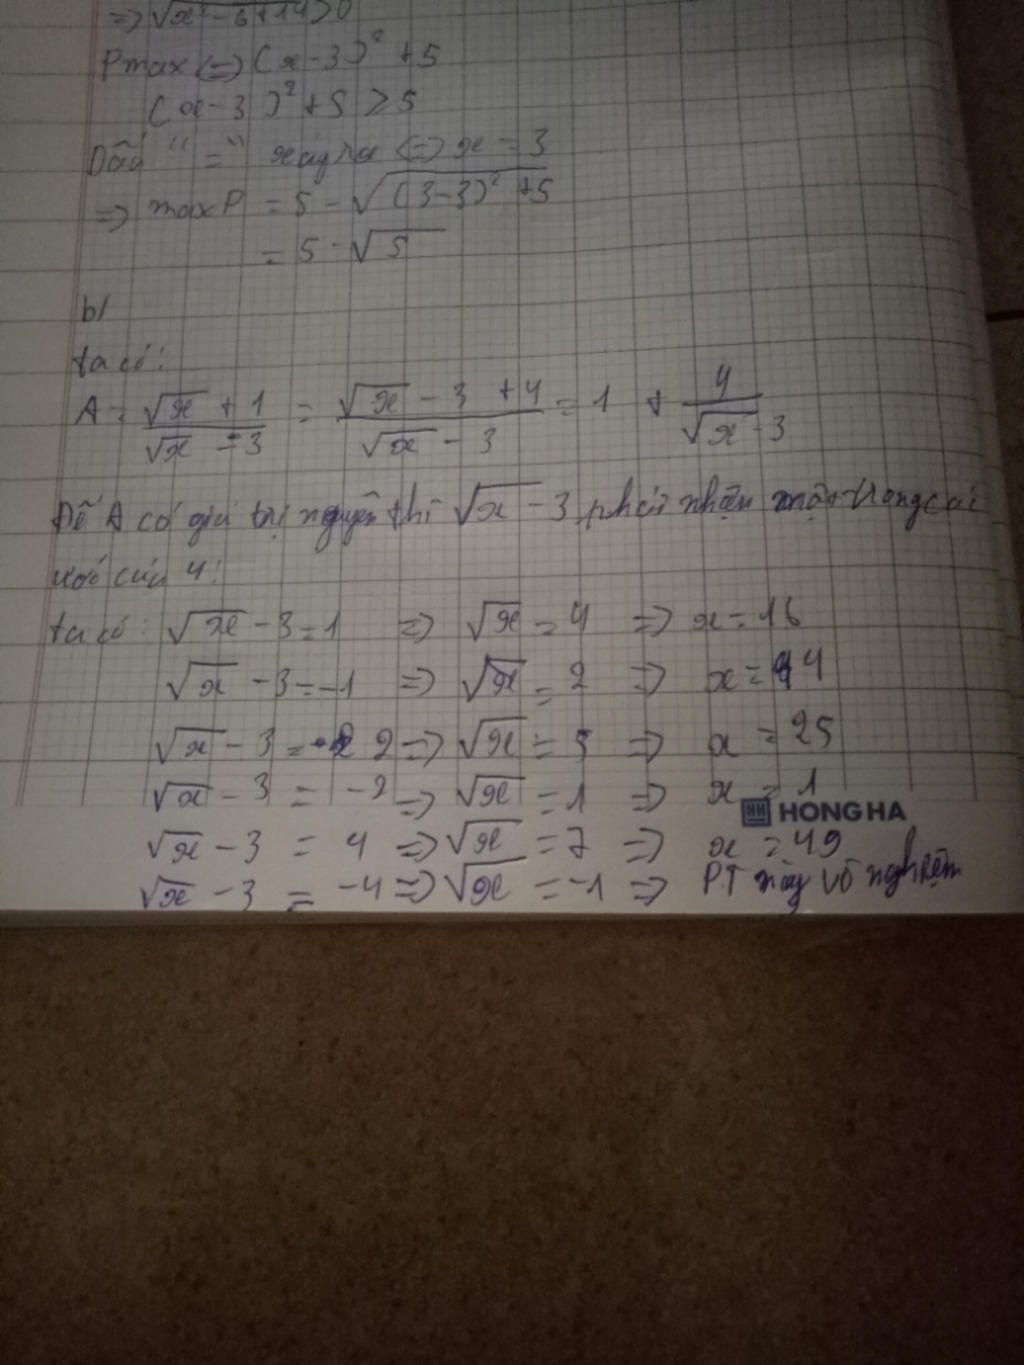 => √x² - 6 + 14 > 0
Pmax <=> (x - 3)² + 5
(x - 3)² + 5 > 5
Dấu "=" xảy ra <=> x = 3
=> max P = 5 - √(3-3)² + 5
= 5 - √5
b/
ta có:
A = (√x + 1)/(√x - 3) = (√x - 3 + 4)/(√x - 3) = 1 + 4/(√x - 3)
Để A có giá trị nguyên thì √x - 3 phải nhận một trong các
ước của 4:
ta có: √x - 3 = 1 => √x = 4 => x = 16
√x - 3 = -1 => √x = 2 => x = 4
√x - 3 = 2 => √x = 5 => x = 25
√x - 3 = -2 => √x = 1 => x = 1
HH HONG HA
√x - 3 = 4 => √x = 7 => x = 49
√x - 3 = -4 => √x = -1 => P.T này vô nghiệm